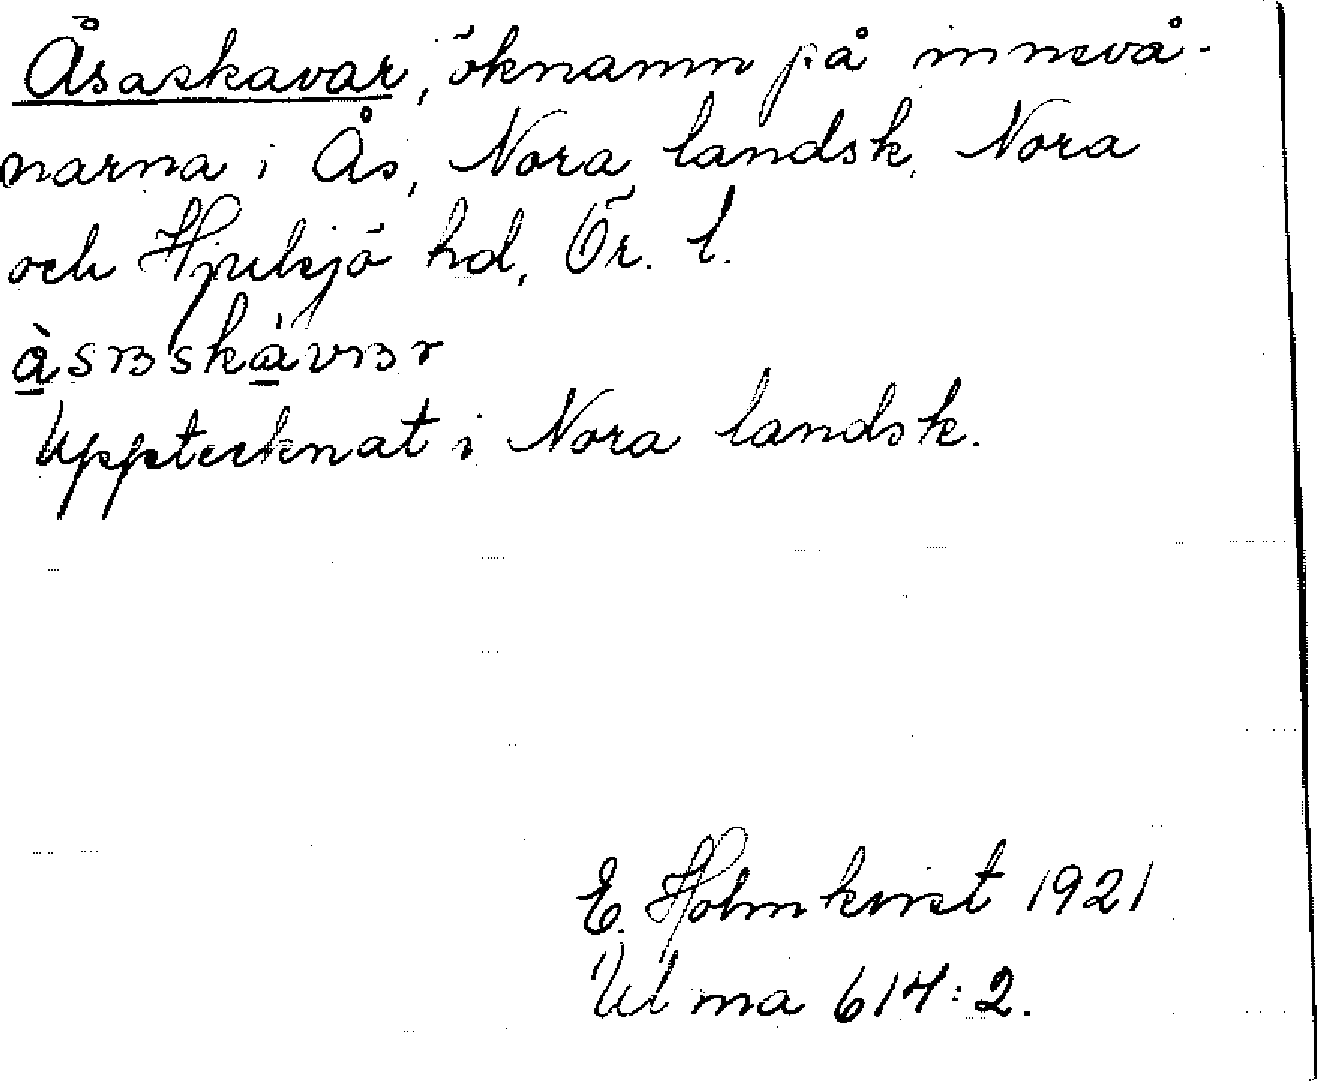 Åsaskavar, öknamn på innevå-
narna i Ås, Nora landsk, Nora
och Hjulsjö hd, Ör. l.
Upptecknat i Nora landsk.
E. Holmkvist 1921
Ulma 614:2.